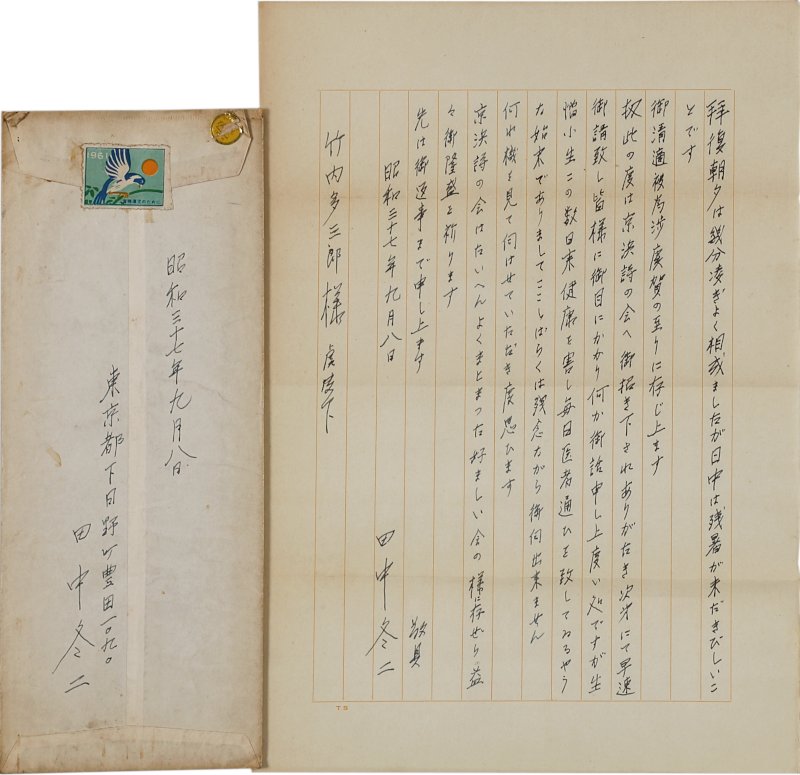 拝復朝夕は幾分凌ぎよく相成ましたが日中は残暑が未だきびしいこ
とです
御清適被為渉慶賀の至りに存じ上ます
扨此の度は京浜詩の会へ御招き下されありがたき次第にて早速
御請致し皆様に御目にかかり何か御話申し上度い処ですが生
憎小生この数日来健康を害し毎日医者通ひを致してゐるやう
な始末でありましてここしばらくは残念ながら御伺出来ません
何れ機を見て伺はせていただき度思ひます
京浜詩の会はたいへんよくまとまつた好ましい会の様に存ぜられ益
々御隆盛を祈ります
先は御返事まで申し上ます
敬具
昭和三十七年九月八日
田中冬二
竹内多三郎様
虎皮下
T.S
1961
昭和三十七年九月八日
東京都下日野町豊田一〇九〇
田中冬二